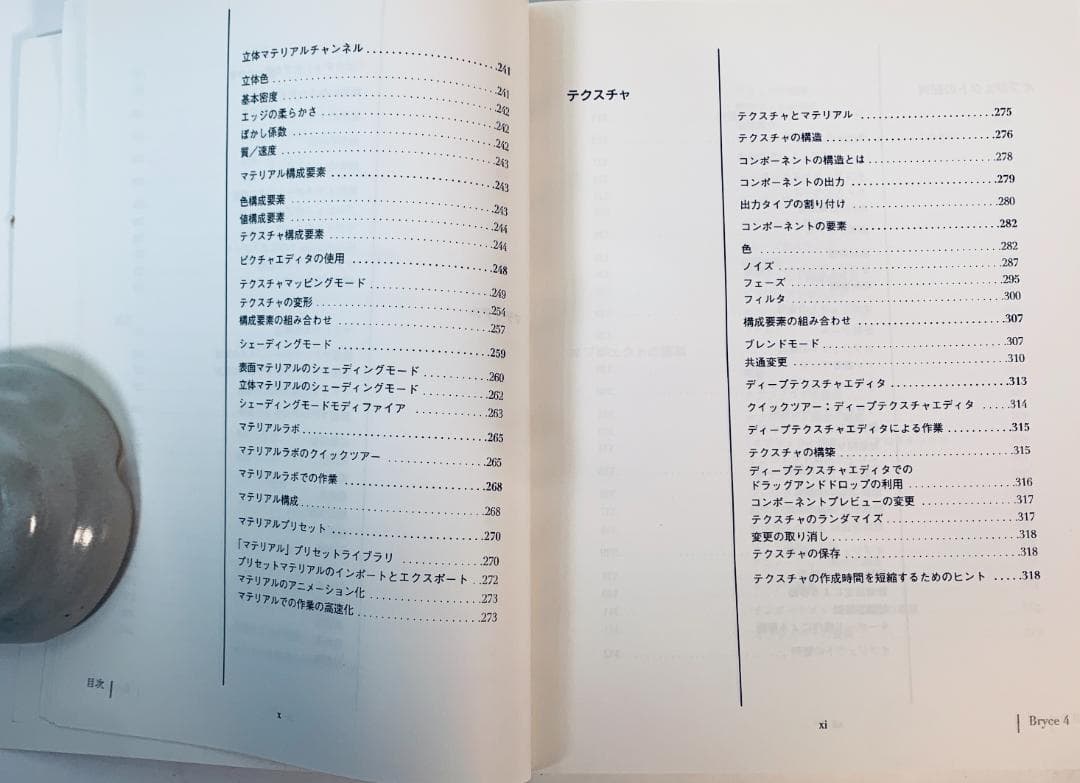 立体マテリアルチャンネル ........................241
立体色 ........................241
基本密度 ........................242
エッジの柔らかさ ........................242
ぼかし係数 ........................242
質／速度 ........................243
マテリアル構成要素 ........................243
色構成要素 ........................243
値構成要素 ........................244
テクスチャ構成要素 ........................244
ピクチャエディタの使用 ........................248
テクスチャマッピングモード ........................249
テクスチャの変形 ........................254
構成要素の組み合わせ ........................257
シェーディングモード ........................259
表面マテリアルのシェーディングモード ...........260
立体マテリアルのシェーディングモード ...........262
シェーディングモードモディファイア ...........263
マテリアルラボ ........................265
マテリアルラボのクイックツアー ...............265
マテリアルラボでの作業 ........................268
マテリアル構成 ........................268
マテリアルプリセット ........................270
「マテリアル」プリセットライブラリ ...........270
プリセットマテリアルのインポートとエクスポート ..272
マテリアルのアニメーション化 ...............273
マテリアルでの作業の高速化 ...............273
目次
x
テクスチャ
テクスチャとマテリアル ....................275
テクスチャの構造 ........................276
コンポーネントの構造とは ....................278
コンポーネントの出力 ........................279
出力タイプの割り付け ........................280
コンポーネントの要素 ........................282
色 ........................282
ノイズ ........................287
フェーズ ........................295
フィルタ ........................300
構成要素の組み合わせ ........................307
ブレンドモード ........................307
共通変更 ........................310
ディープテクスチャエディタ ...............313
クイックツアー：ディープテクスチャエディタ .....314
ディープテクスチャエディタによる作業 .........315
テクスチャの構築 ........................315
ディープテクスチャエディタでの
ドラッグアンドドロップの利用 ...............316
コンポーネントプレビューの変更 ...............317
テクスチャのランダマイズ ...................317
変更の取り消し ........................318
テクスチャの保存 ........................318
テクスチャの作成時間を短縮するためのヒント .....318
xi
Bryce 4